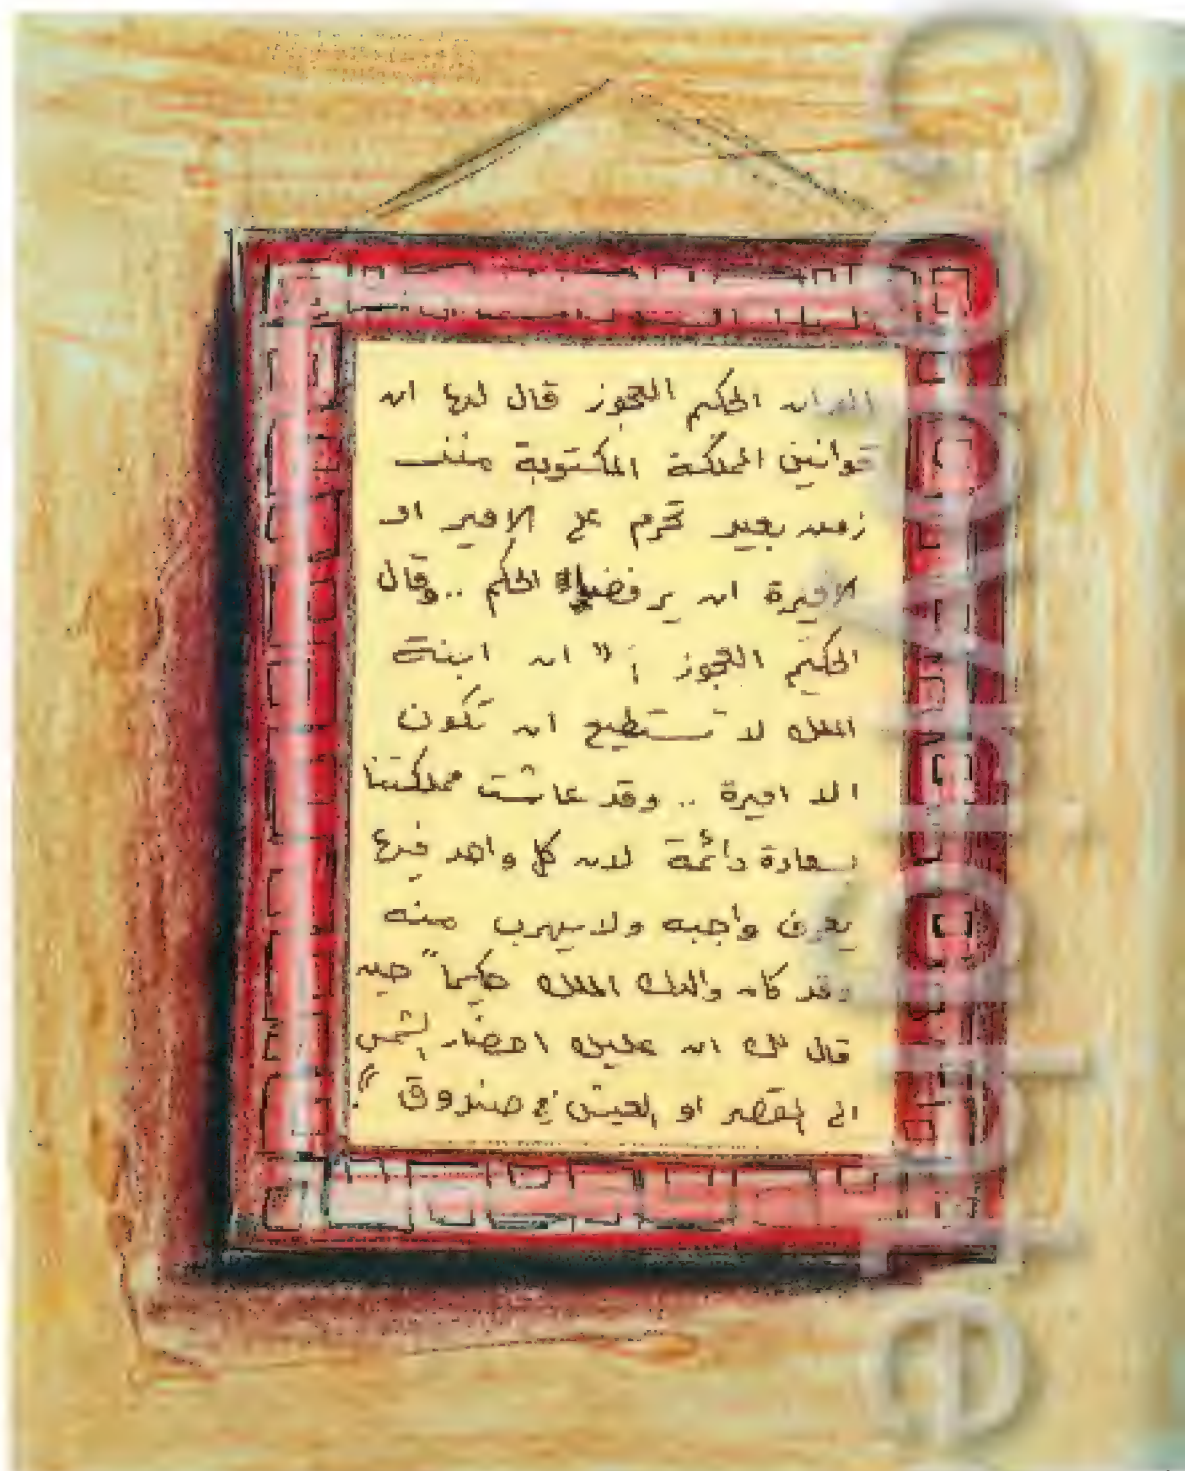 الا ان الحكيم العجوز قال لها ان
قوانين المملكة المكتوبة منذ
زمن بعيد تحرم على الامير او
الاميرة ان يرفضا الحكم .. وقال
الحكيم العجوز : " ان ابنة
الملك لا تستطيع ان تكون
الا اميرة .. وقد عاشت مملكتنا
بسعادة دائمة لان كل واحد فيها
يعرف واجبه ولا يهرب منه
وقد كان والدك الملك حكيما" حين
قال لك ان عليك احضار الشمس
الى القصر او العيش في صندوق ".